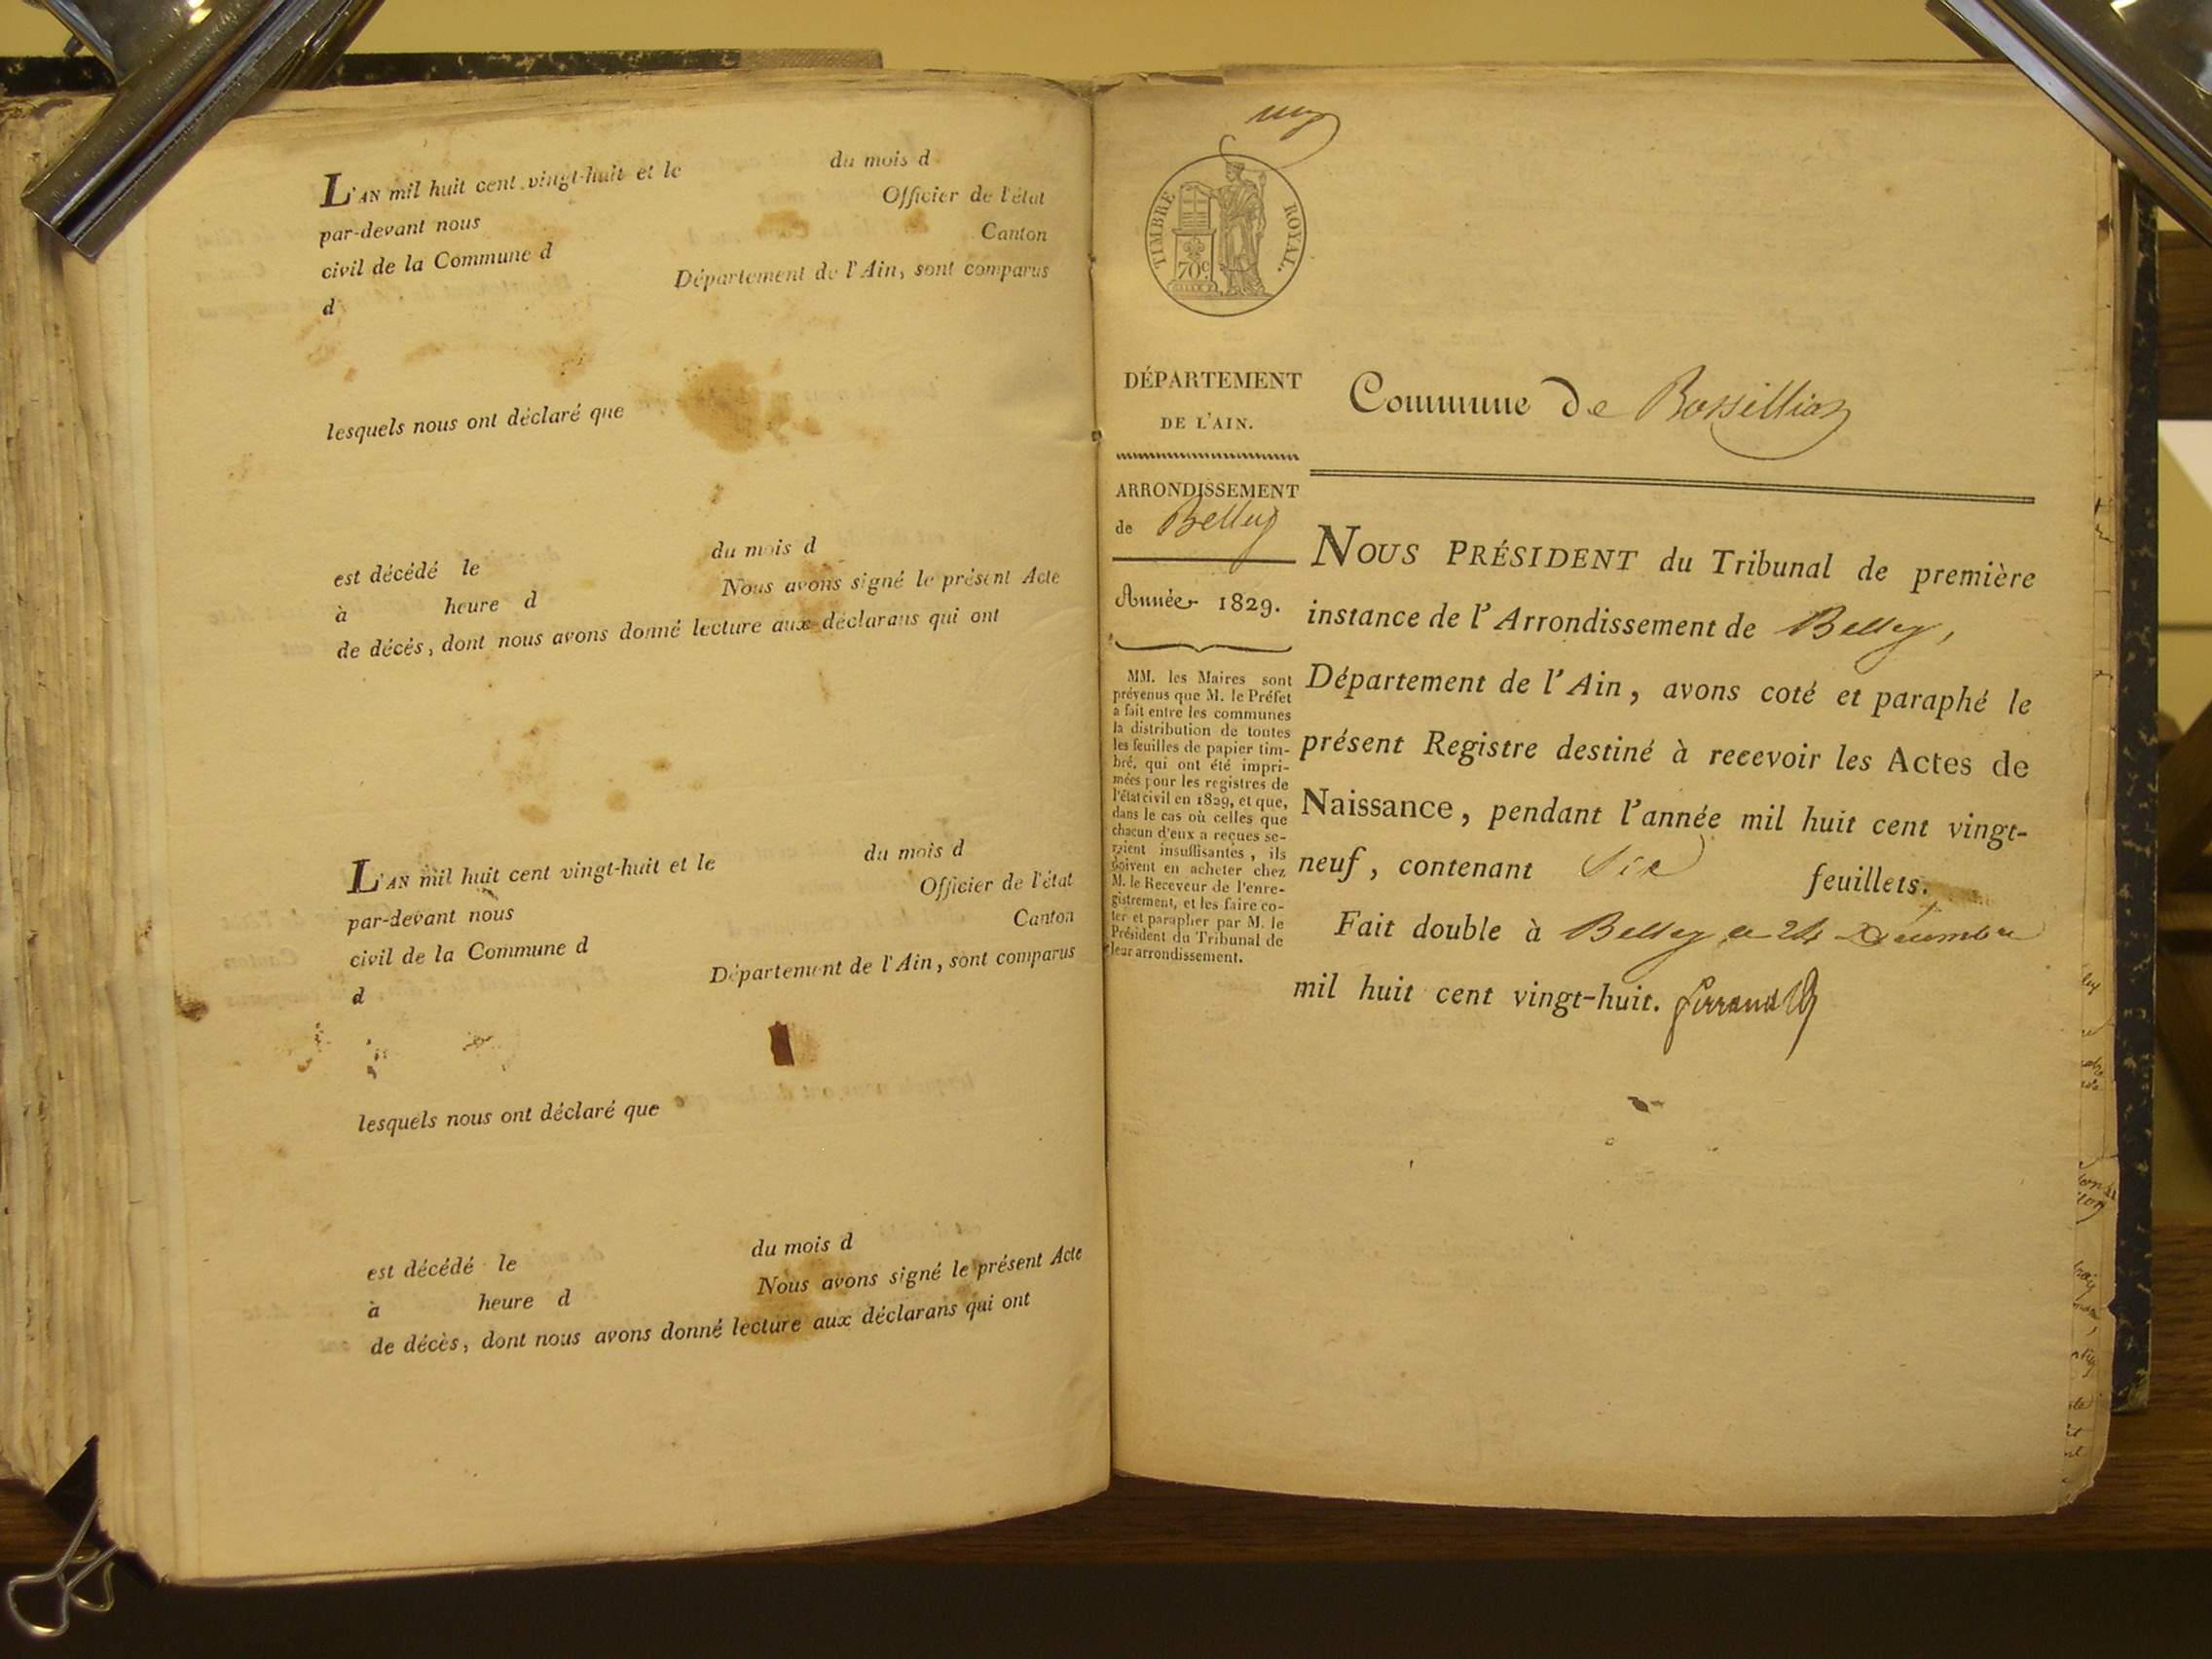 L'AN mil huit cent vingt-huit et le du mois d
par-devant nous Officier de l'état
civil de la Commune d Canton
d Département de l'Ain, sont comparus
lesquels nous ont déclaré que
est décédé le du mois d
à heure d Nous avons signé le présent Acte
de décès, dont nous avons donné lecture aux déclarans qui ont
L'AN mil huit cent vingt-huit et le du mois d
par-devant nous Officier de l'état
civil de la Commune d Canton
d Département de l'Ain, sont comparus
lesquels nous ont déclaré que
est décédé le du mois d
à heure d Nous avons signé le présent Acte
de décès, dont nous avons donné lecture aux déclarans qui ont
TIMBRE ROYAL.
70c
DÉPARTEMENT
DE L'AIN.
ARRONDISSEMENT
de Belley
Année 1829.
MM. les Maires sont
prévenus que M. le Préfet
a fait entre les communes
la distribution de toutes
les feuilles de papier tim-
bré, qui ont été impri-
mées pour les registres de
l'état civil en 1829, et que,
dans le cas où celles que
chacun d'eux a reçues se-
raient insuffisantes, ils
doivent en acheter chez
M. le Receveur de l'enre-
gistrement, et les faire co-
ter et parapher par M. le
Président du Tribunal de
leur arrondissement.
Commune de Rossillion
NOUS PRÉSIDENT du Tribunal de première
instance de l'Arrondissement de Belley,
Département de l'Ain, avons coté et paraphé le
présent Registre destiné à recevoir les Actes de
Naissance, pendant l'année mil huit cent vingt-
neuf, contenant Six feuillets.
Fait double à Belley ce 24 Décembre
mil huit cent vingt-huit. ferrand